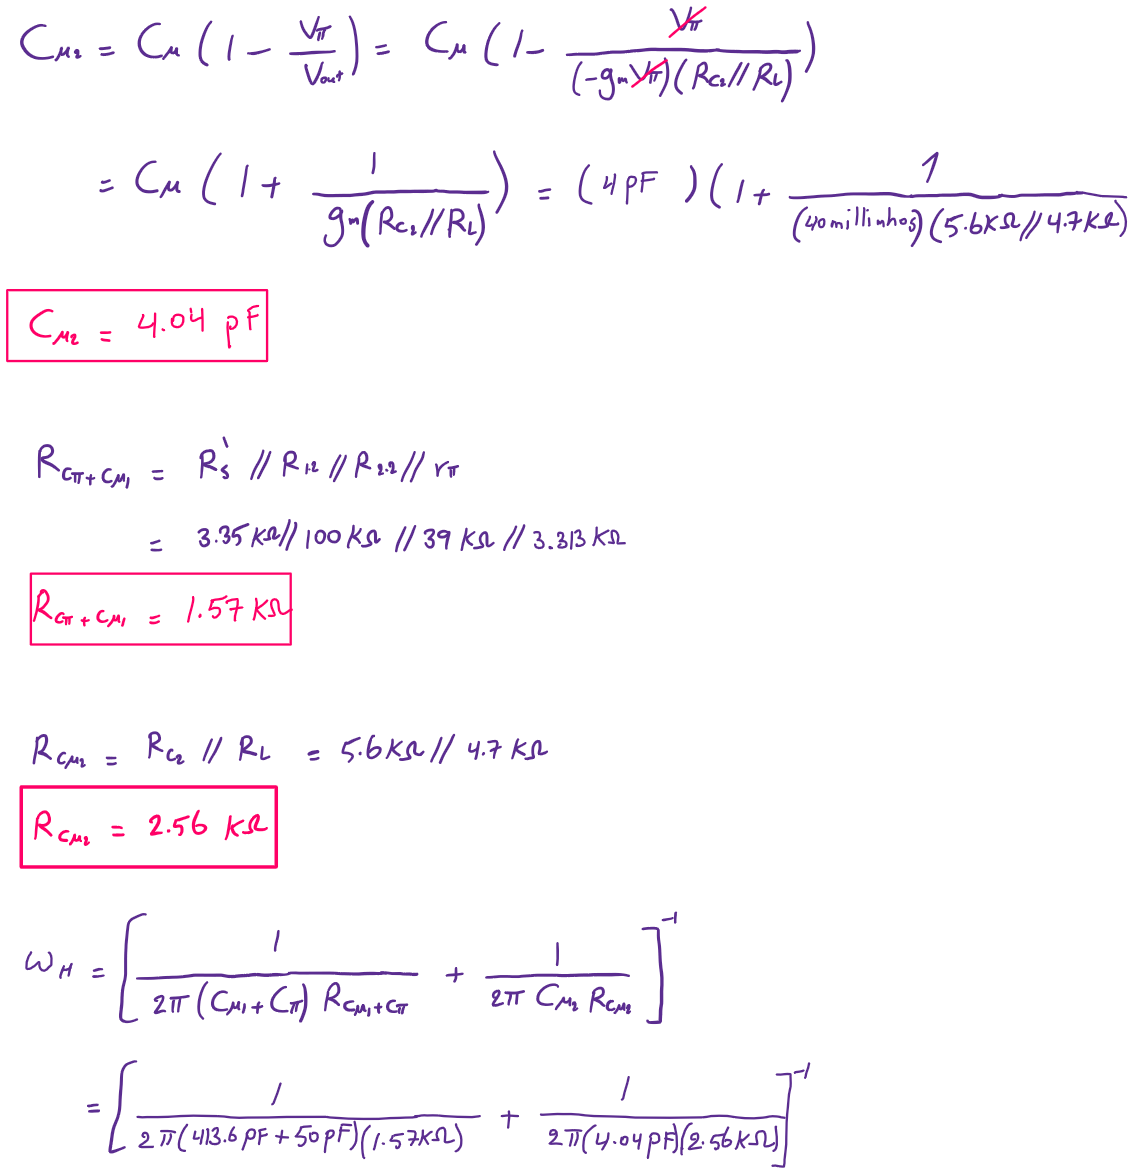 Cμ₂ = Cμ (1 - Vπ/Vout) = Cμ (1 - Vπ/((-gm Vπ)(Rc₂//RL)))
= Cμ (1 + 1/(gm(Rc₂//RL))) = (4 pF) (1 + 1/((40 millimhos)(5.6KΩ//4.7KΩ)))
Cμ₂ = 4.04 pF
Rcπ+cμ₁ = Rs' // R₁.₂ // R₂.₂ // rπ
= 3.35 KΩ // 100 KΩ // 39 KΩ // 3.313 KΩ
Rcπ+cμ₁ = 1.57 KΩ
Rcμ₂ = Rc₂ // RL = 5.6 KΩ // 4.7 KΩ
Rcμ₂ = 2.56 KΩ
ωH = [1/(2π(Cμ₁+Cπ) Rcμ₁+cπ) + 1/(2π Cμ₂ Rcμ₂)]⁻¹
= [1/(2π(413.6 pF + 50 pF)(1.57KΩ)) + 1/(2π(4.04 pF)(2.56KΩ))]⁻¹